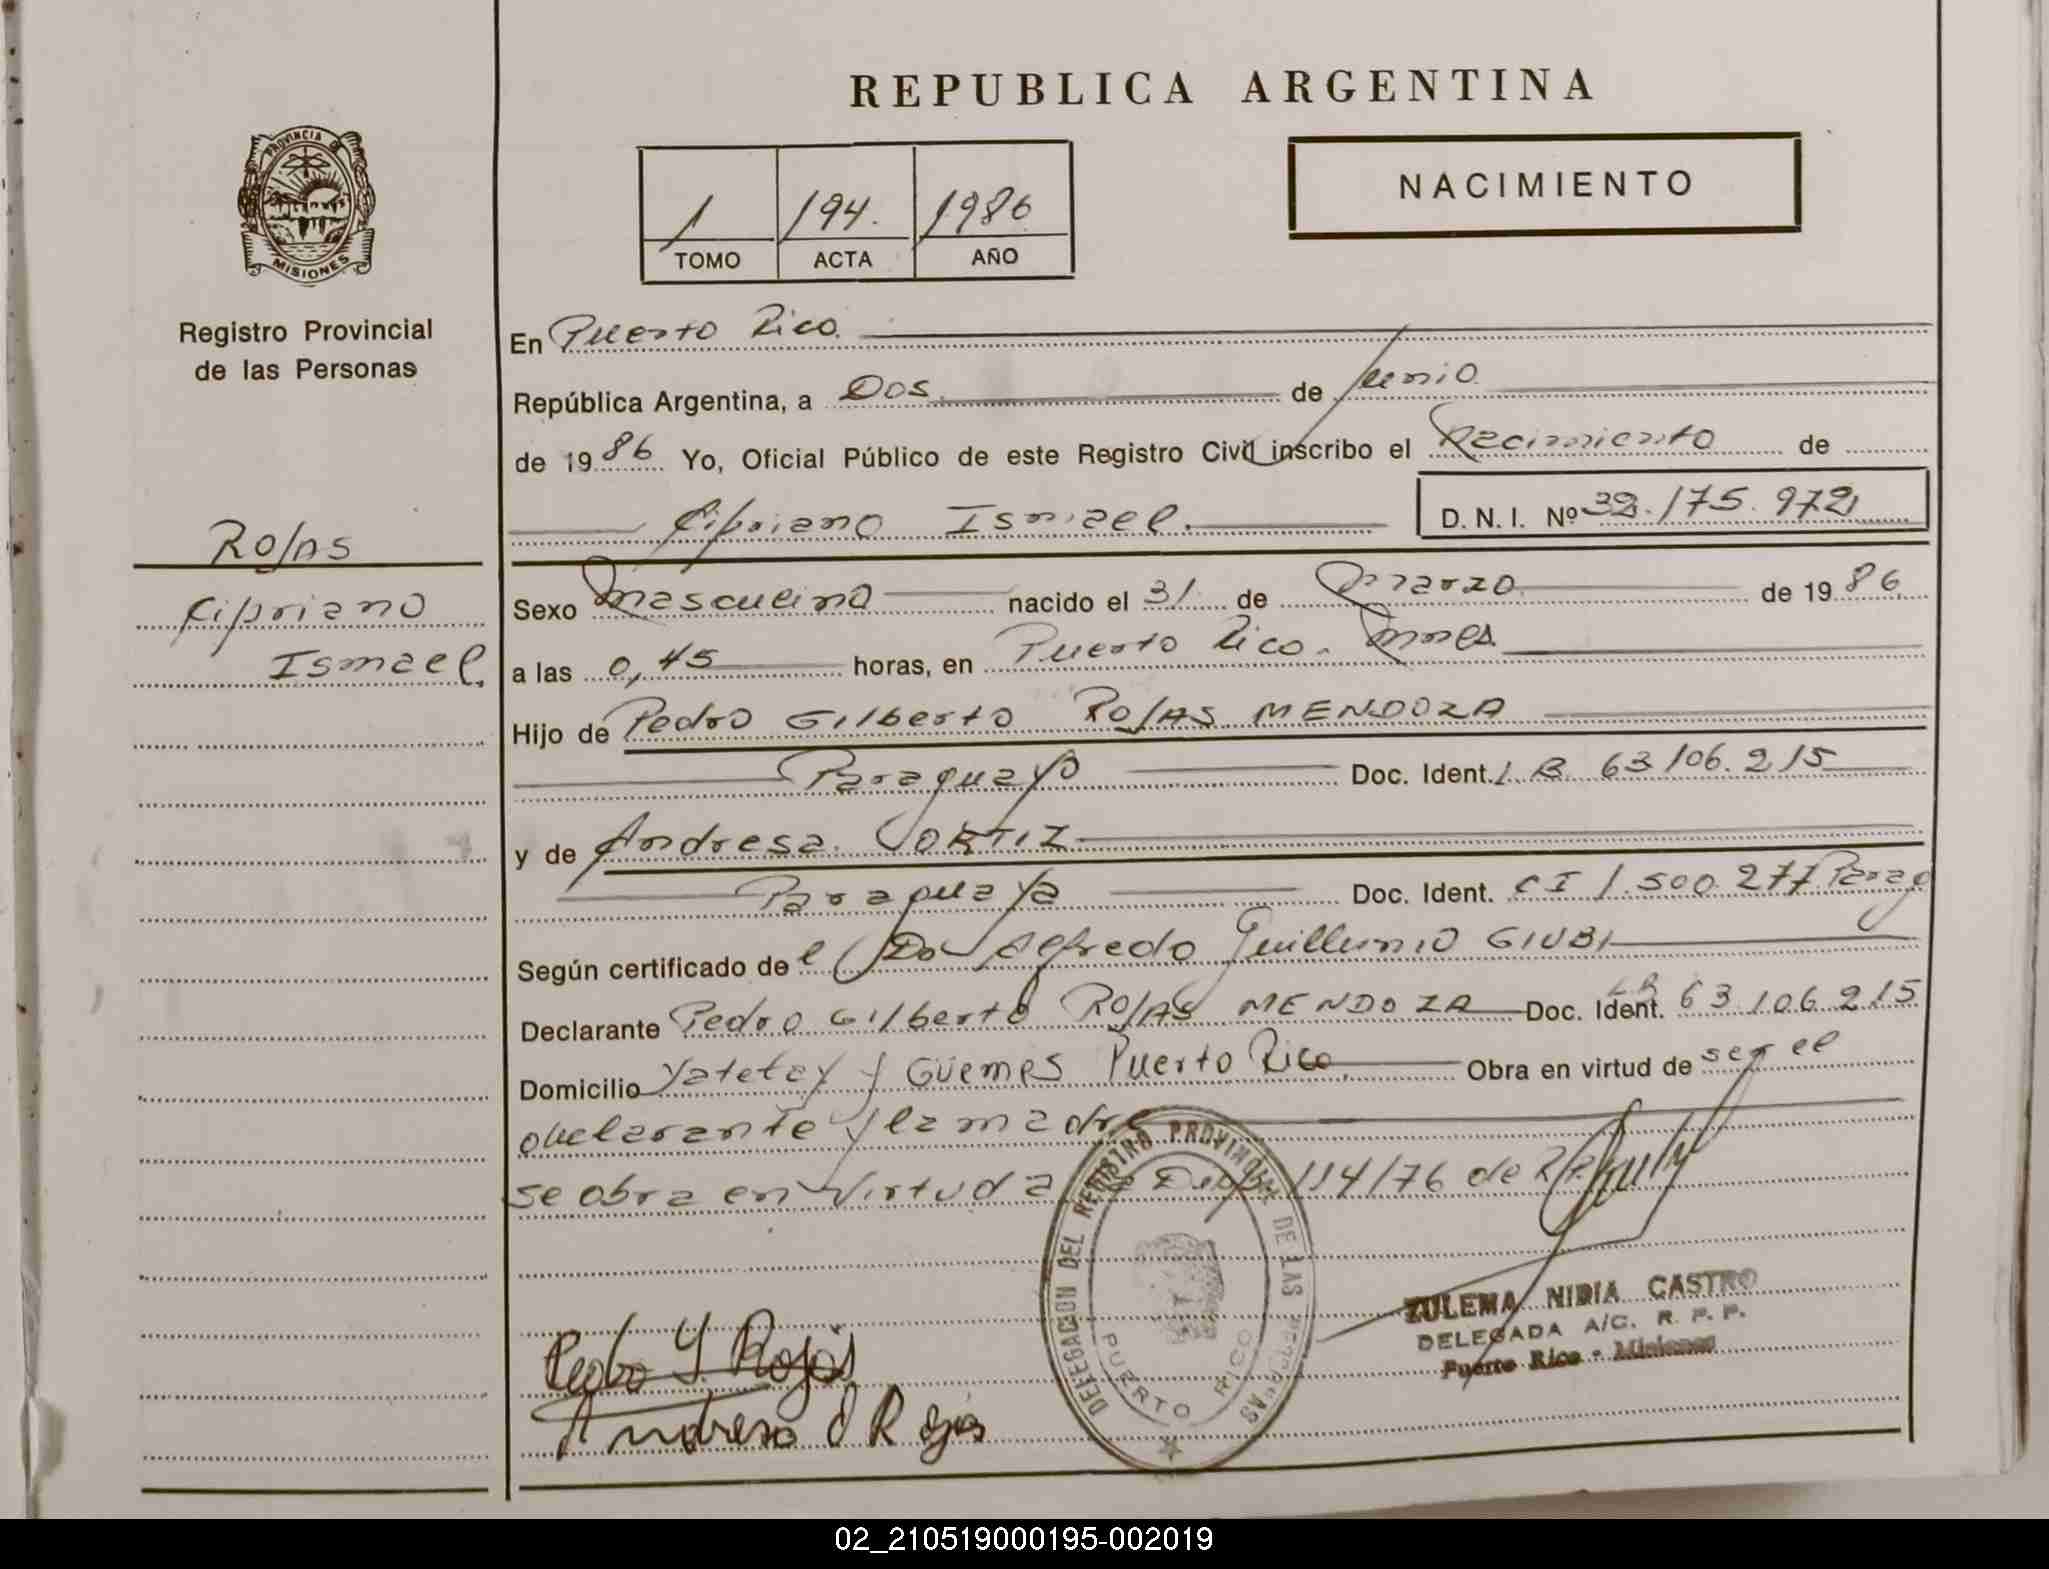 REPUBLICA ARGENTINA
PROVINCIA DE
MISIONES
1 194. 1986
TOMO ACTA AÑO
NACIMIENTO
Registro Provincial
de las Personas
ROJAS
Cipriano
Ismael.
En Puerto Rico.
República Argentina, a Dos. de Junio.
de 1986 Yo, Oficial Público de este Registro Civil inscribo el Nacimiento de
Cipriano Ismael. D. N. I. Nº 32.175.972
Sexo Masculino nacido el 31 de Marzo. de 1986.
a las 0,45 horas, en Puerto Rico. Mnes.
Hijo de Pedro Gilberto ROJAS MENDOZA
Paraguayo Doc. Ident. I. B. 63.106.215
y de Andresa ORTIZ
Paraguaya Doc. Ident. CI 1.500.277 Parag
Según certificado de el Dr Alfredo Guillermo GIUBI
Declarante Pedro Gilberto ROJAS MENDOZA Doc. Ident. 63.106.215
Domicilio Yatetay y Güemes Puerto Rico. Obra en virtud de ser el
declarante y la madre
se obra en virtud a Disp. 114/76 de
DELEGACION DEL REGISTRO PROVINCIAL DE LAS PERSONAS
PUERTO RICO
ZULEMA NIDIA CASTRO
DELEGADA A/C. R. P. P.
Puerto Rico - Misiones
Pedro G. Rojas
Andresa O R ojas
02_210519000195-002019